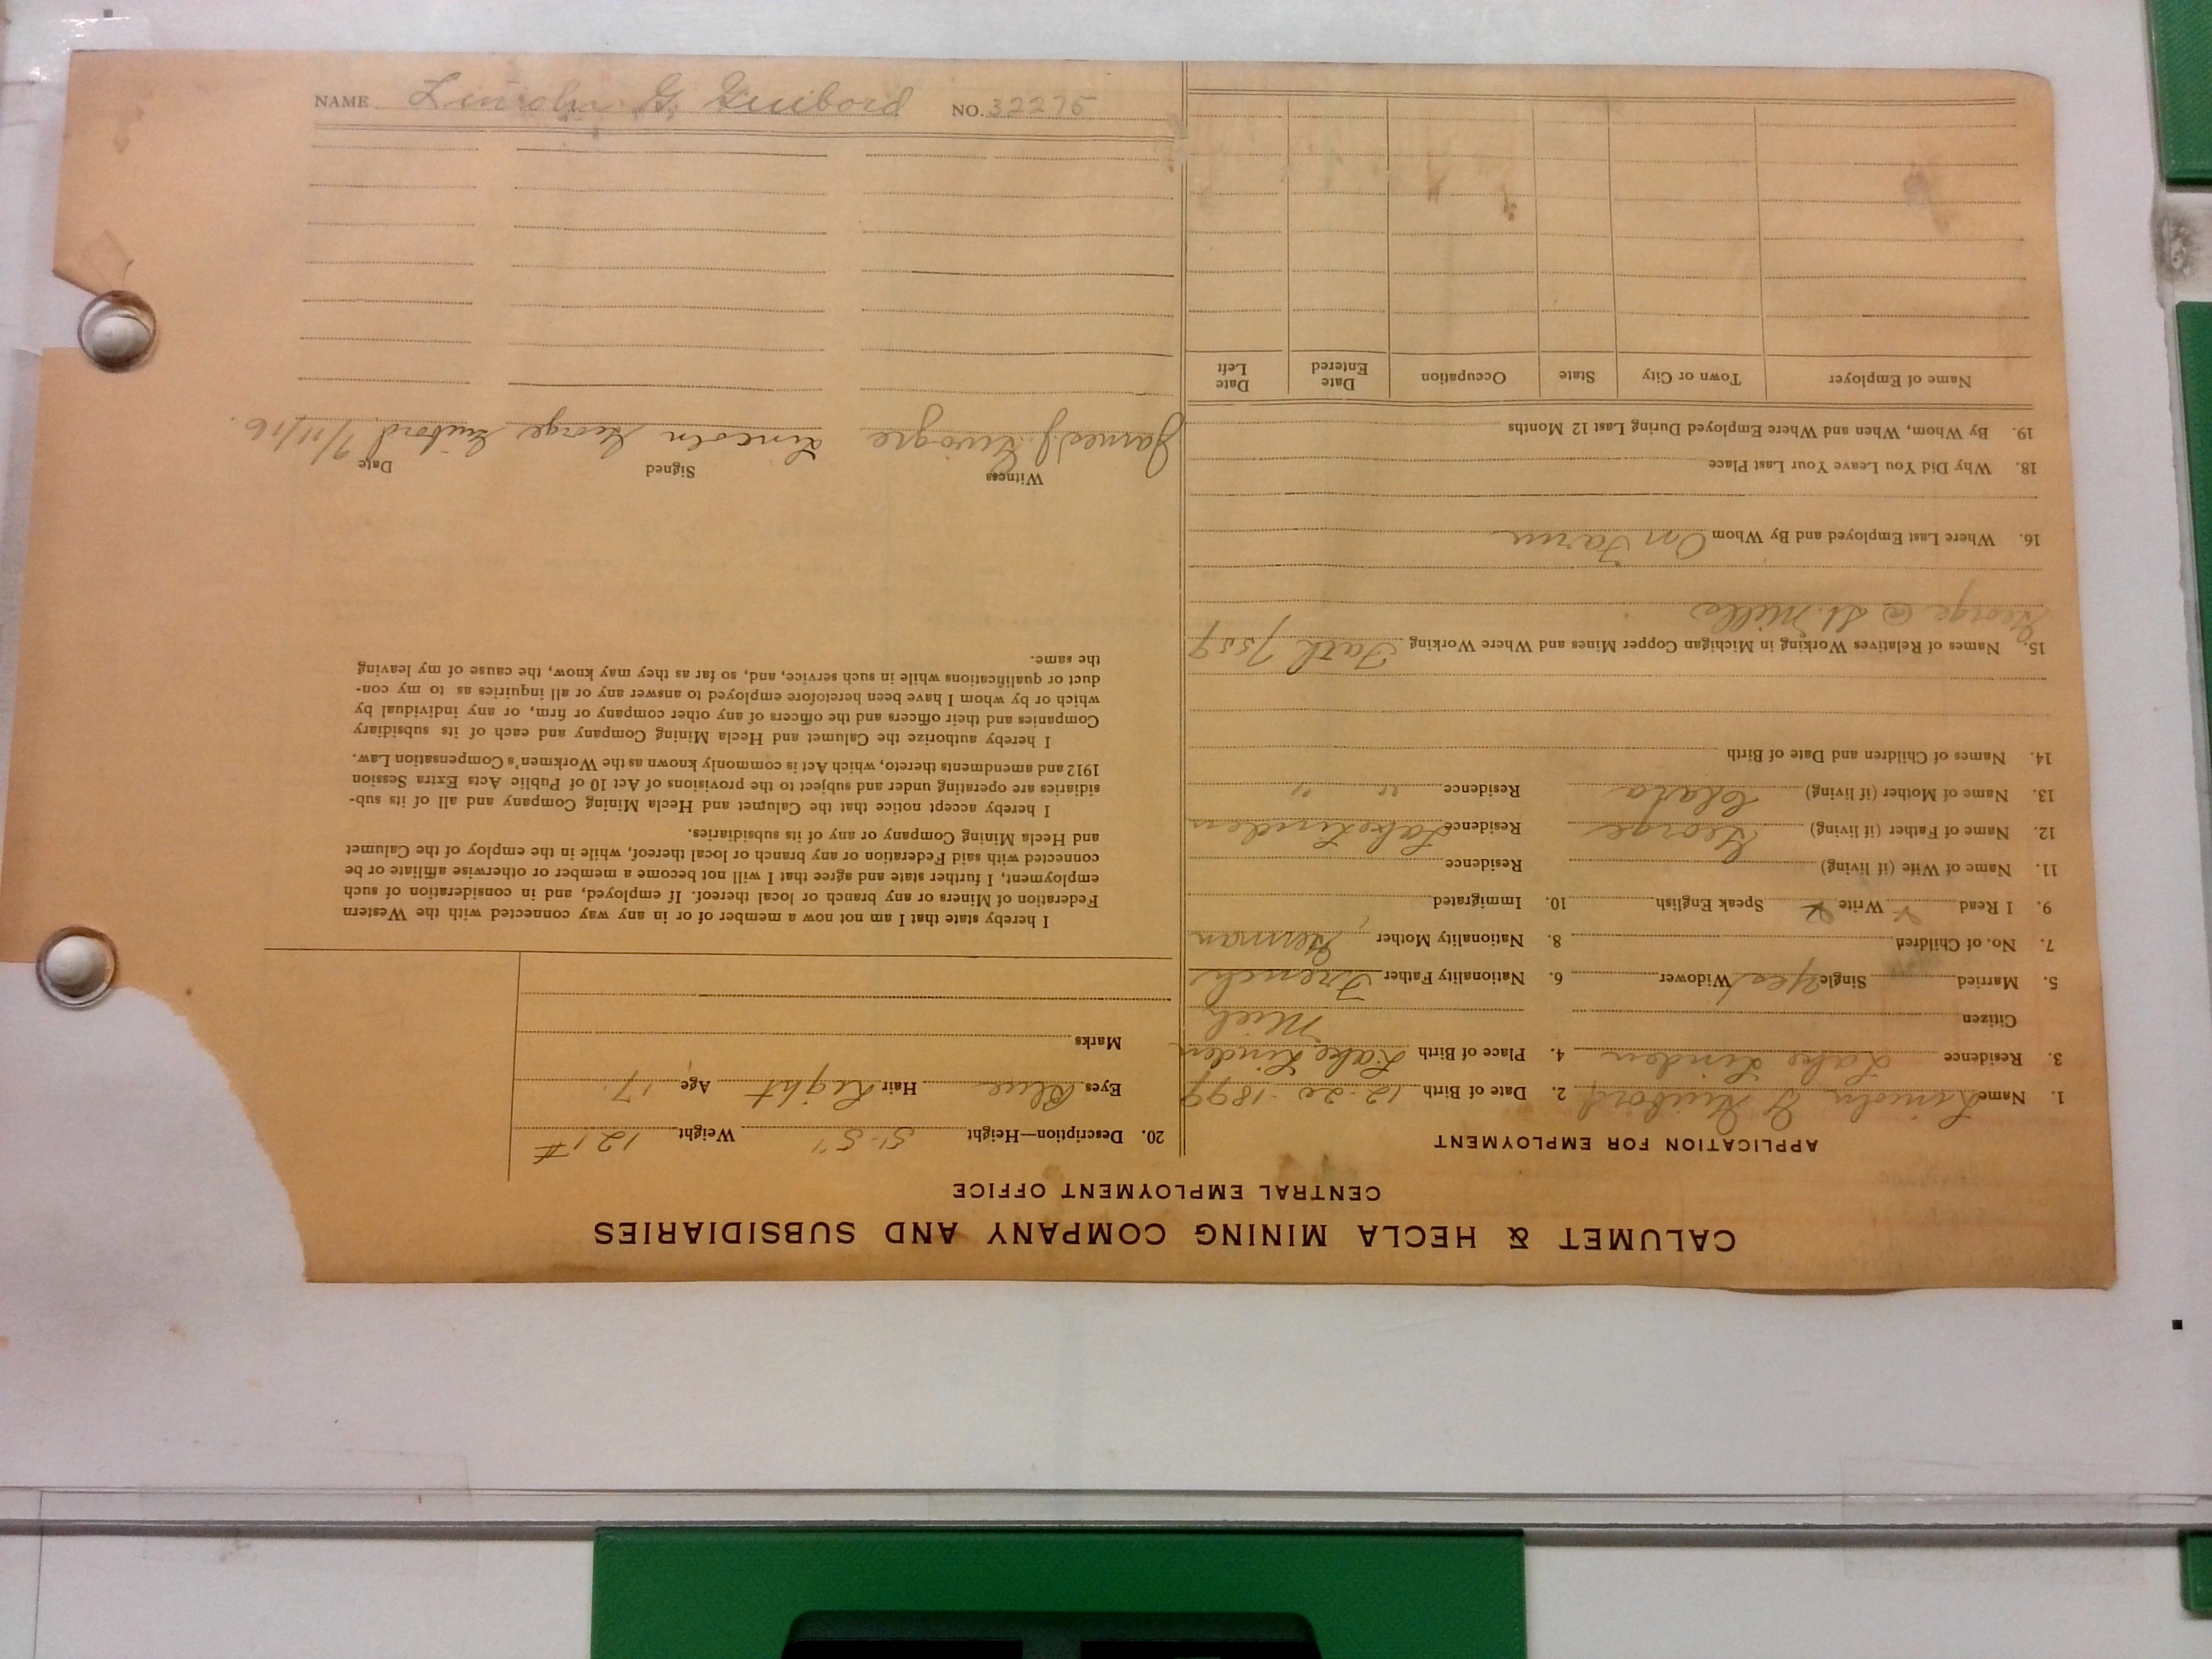 CALUMET & HECLA MINING COMPANY AND SUBSIDIARIES
CENTRAL EMPLOYMENT OFFICE
APPLICATION FOR EMPLOYMENT
1. Name Lincoln G Guibord 2. Date of Birth 12-20-1899
3. Residence Lake Linden 4. Place of Birth Lake Linden
Citizen Mich
5. Married Single Yes Widower 6. Nationality Father French
7. No. of Children 8. Nationality Mother German
9. I Read Write Speak English 10. Immigrated
11. Name of Wife (if living) Residence
12. Name of Father (if living) George Residence Lake Linden
13. Name of Mother (if living) Clara Residence " "
14. Names of Children and Date of Birth
15. Names of Relatives Working in Michigan Copper Mines and Where Working Fath 7559
George @ St. Mills
16. Where Last Employed and By Whom On Farm
18. Why Did You Leave Your Last Place
19. By Whom, When and Where Employed During Last 12 Months
Name of Employer Town or City State Occupation Date Entered Date Left
20. Description—Height 5'-5" Weight 121 #
Eyes Blue Hair Light Age 17
Marks
I hereby state that I am not now a member of or in any way connected with the Western
Federation of Miners or any branch or local thereof. If employed, and in consideration of such
employment, I further state and agree that I will not become a member or otherwise affiliate or be
connected with said Federation or any branch or local thereof, while in the employ of the Calumet
and Hecla Mining Company or any of its subsidiaries.
I hereby accept notice that the Calumet and Hecla Mining Company and all of its sub-
sidiaries are operating under and subject to the provisions of Act 10 of Public Acts Extra Session
1912 and amendments thereto, which Act is commonly known as the Workmen's Compensation Law.
I hereby authorize the Calumet and Hecla Mining Company and each of its subsidiary
Companies and their officers and the officers of any other company or firm, or any individual by
which or by whom I have been heretofore employed to answer any or all inquiries as to my con-
duct or qualifications while in such service, and, so far as they may know, the cause of my leaving
the same.
Witness Signed Date
James J. Lincoln George Guibord 7/11/16.
NAME Lincoln G. Guibord NO. 32275